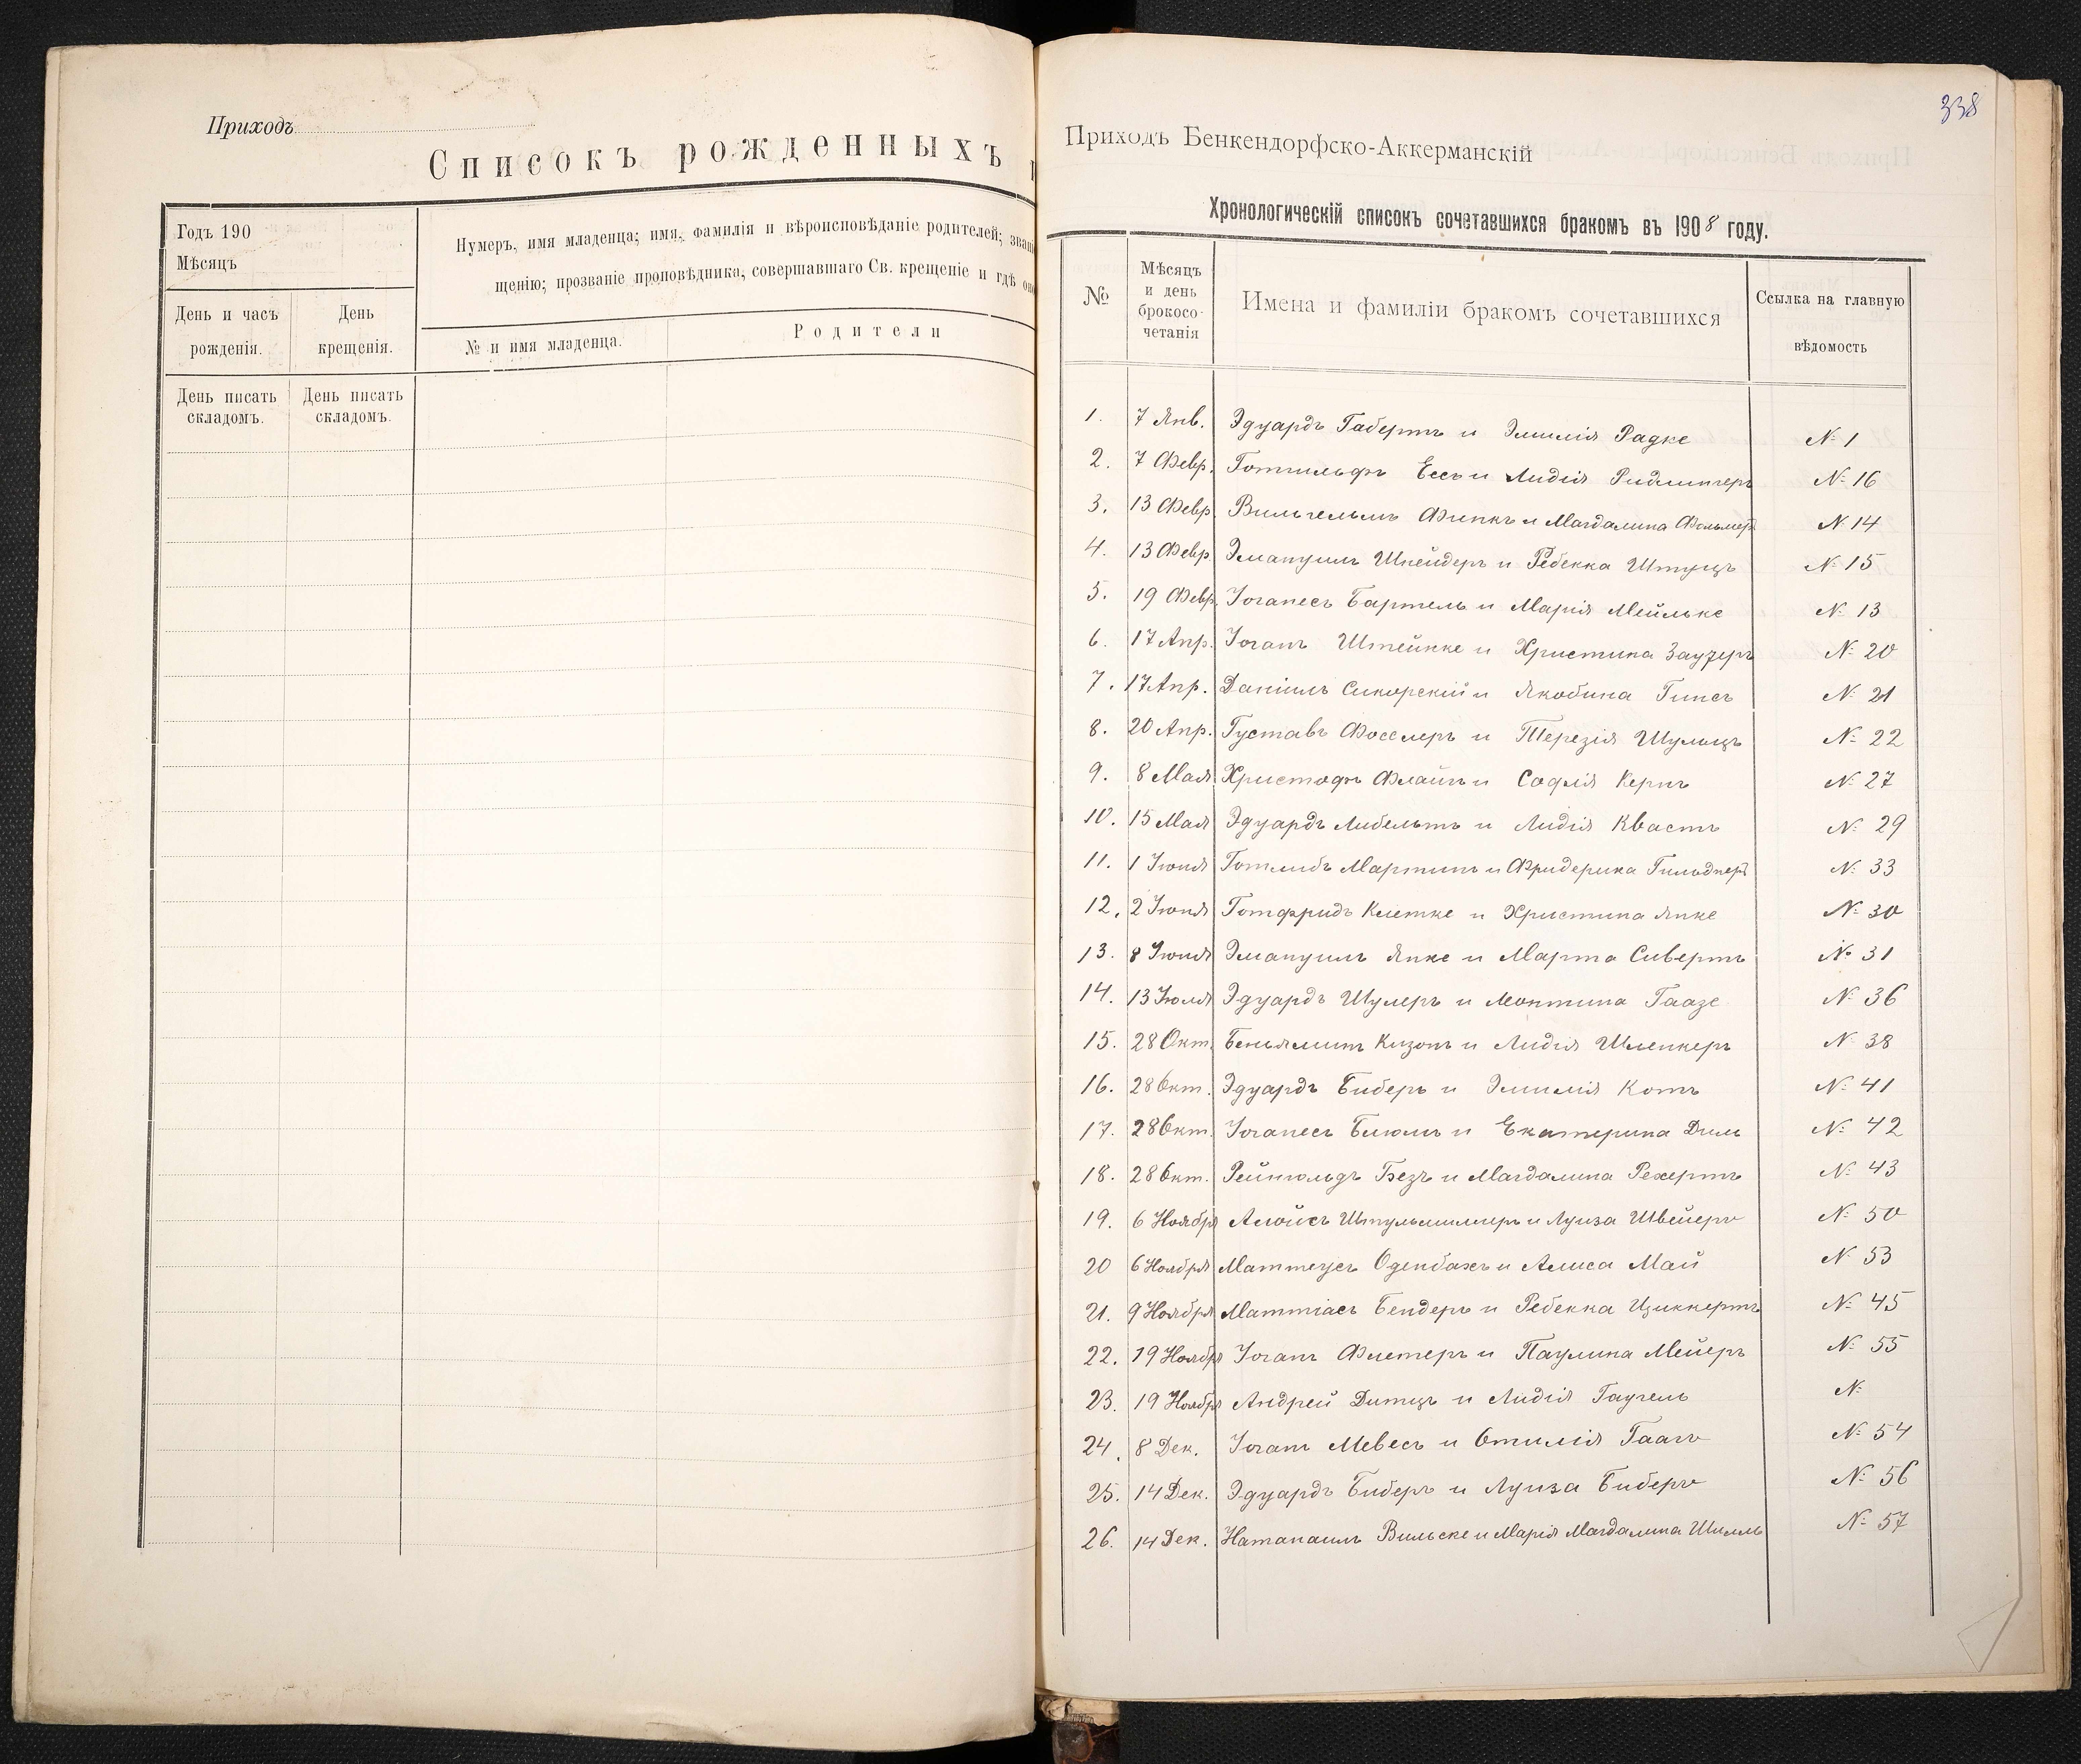 Приходъ
Списокъ рожденныхъ
Годъ 190
Мѣсяцъ
Нумеръ, имя младенца; имя, фамилія и вѣроисповѣданіе родителей;
щенію; прозваніе проповѣдника, совершавшаго Св. крещеніе и гдѣ
День и часъ
рожденія.
День
крещенія.
№ и имя младенца.
Родители
День писать
складомъ.
День писать
складомъ.
338
Приходъ Бенкендорфско-Аккерманскій
Хронологическій списокъ сочетавшихся бракомъ въ 1908 году.
№
Мѣсяцъ
и день
брокосо-
четанія
Имена и фамиліи бракомъ сочетавшихся
Ссылка на главную
вѣдомость
1. 7 Янв. Эдуардъ Габертъ и Эмилія Радке № 1
2. 7 Февр. Готгильфъ Ессъ и Лидія Ридлингеръ № 16
3. 13 Февр. Вильгельмъ Финкъ и Магдалина Фольмеръ № 14
4. 13 Февр. Эмануилъ Шнейдеръ и Ребекка Штуцъ № 15
5. 19 Февр. Іоганесъ Бартель и Марія Мейльке № 13
6. 17 Апр. Іоганъ Штейнке и Христина Заузеръ № 20
7. 17 Апр. Даніилъ Сикорскій и Якобина Гинсъ № 21
8. 20 Апр. Густавъ Фосслеръ и Терезія Шульцъ № 22
9. 8 Мая Христофъ Флайгъ и Софія Кернъ № 27
10. 15 Мая Эдуардъ Либельтъ и Лидія Квастъ № 29
11. 1 Іюня Готлибъ Мартинъ и Фридерика Гильднеръ № 33
12. 2 Іюня Готфридъ Клетке и Христина Янке № 30
13. 8 Іюня Эмануилъ Янке и Марта Сивертъ № 31
14. 13 Іюля Эдуардъ Шулеръ и Леонтина Гаазе № 36
15. 28 Окт. Беньяминъ Кизонъ и Лидія Шленкеръ № 38
16. 28 Окт. Эдуардъ Биберъ и Эмилія Котъ № 41
17. 28 Окт. Іоганесъ Блюмъ и Екатерина Диль № 42
18. 28 Окт. Рейнгольдъ Безъ и Магдалина Рехертъ № 43
19. 6 Ноября Алойсъ Штульмиллеръ и Луиза Швейеръ № 50
20 6 Ноября Маттеусъ Оденбахъ и Алиса Май № 53
21. 9 Ноября Маттіасъ Бендеръ и Ребекка Циккертъ № 45
22. 19 Ноября Іоганъ Флетеръ и Паулина Мейеръ № 55
23. 19 Ноября Андрей Дитцъ и Лидія Гаугель №
24. 8 Дек. Іоганъ Мевесъ и Отилія Гаагъ № 54
25. 14 Дек. Эдуардъ Биберъ и Луиза Биберъ № 56
26. 14 Дек. Натанаилъ Вильске и Марія Магдалина Шилль № 57